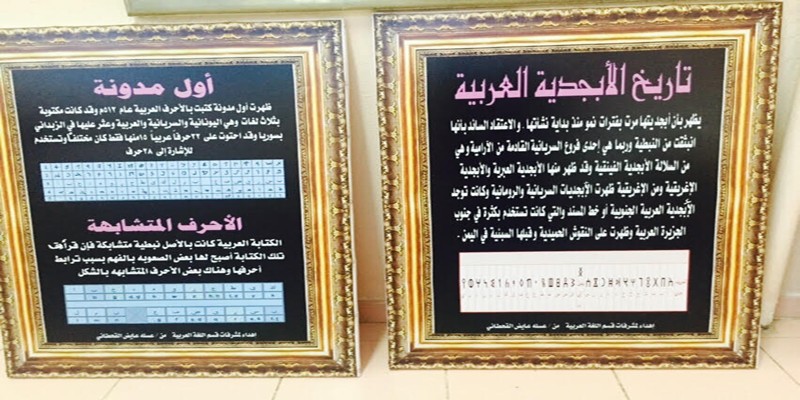 تاريخ الأبجدية العربية
يظهر بأن أبجديتها مرت بفترات نمو منذ بداية نشأتها . والاعتقاد السائد بأنها
انبثقت من النبطية وربما هي إحدى فروع السريانية القادمة من الآرامية وهي
من السلالة الأبجدية الفينقية وقد ظهر منها الأبجدية العبرية والأبجدية
الإغريقية ومن الإغريقية ظهرت الأبجديات السريانية والرومانية وكانت توجد
الأبجدية العربية الجنوبية أو خط المسند والتي كانت تستخدم بكثرة في جنوب
الجزيرة العربية وظهرت على النقوش الحميدية وقبلها السبنية في اليمن .
إهداء لمشرفات قسم اللغة العربية من / عسله عايض القحطاني
أول مدونة
ظهرت أول مدونة كتبت بالأحرف العربية عام ٥١٢م وقد كانت مكتوبة
بثلاث لغات وهي اليونانية والسريانية والعربية وعثر عليها في الزبداني
بسوريا وقد احتوت على ٢٢حرفاً عربياً ١٥منها فقط كان مختلفاً وتستخدم
للإشارة إلى ٢٨حرف
الأحرف المتشابهة
الكتابة العربية كانت بالأصل نبطية متشابكة فإن قرأهف
تلك الكتابة أصبح لها بعض الصعوبه بالفهم بسبب ترابط
أحرفها وهناك بعض الأحرف المتشابهه بالشكل
إهداء لمشرفات قسم اللغة العربية من / عسله عايض القحطاني